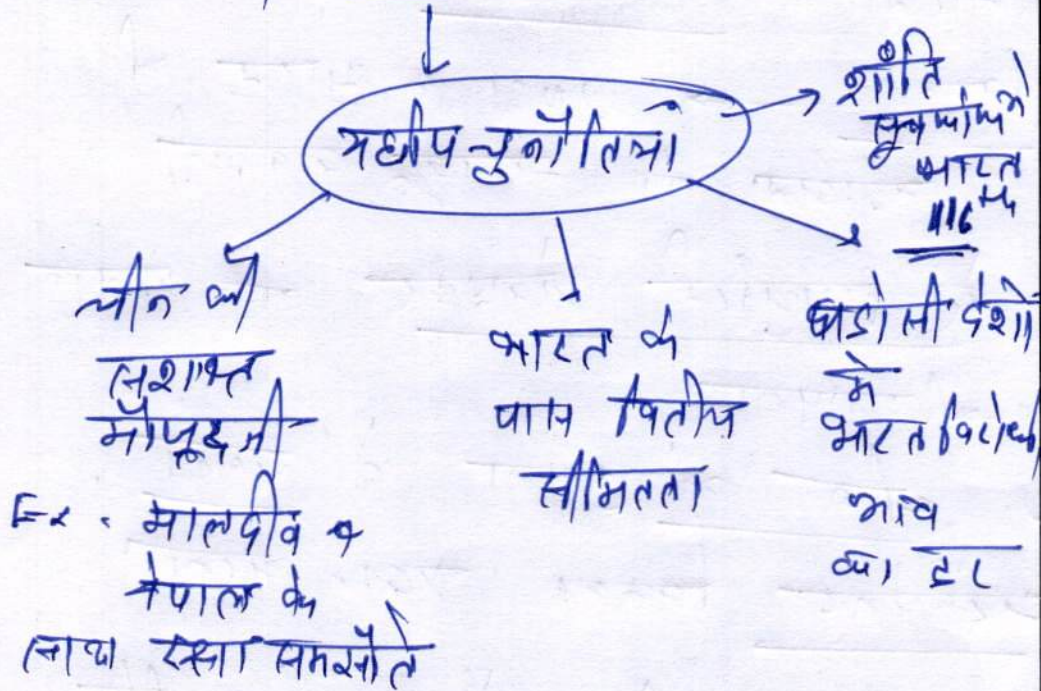 यद्यपि चुनौतियाँ
शांति
सूचकांक में
भारत
116th
चीन की
सशक्त
मौजूदगी
Ex. मालदीव व
नेपाल के
साथ रक्षा समझौते
भारत के
पास वित्तीय
सीमितता
पड़ोसी देशों
में
भारत विरोधी
भाव
का डर